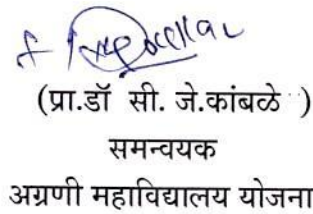 (प्रा.डॉ सी. जे.कांबळे )
समन्वयक
अग्रणी महाविद्यालय योजना